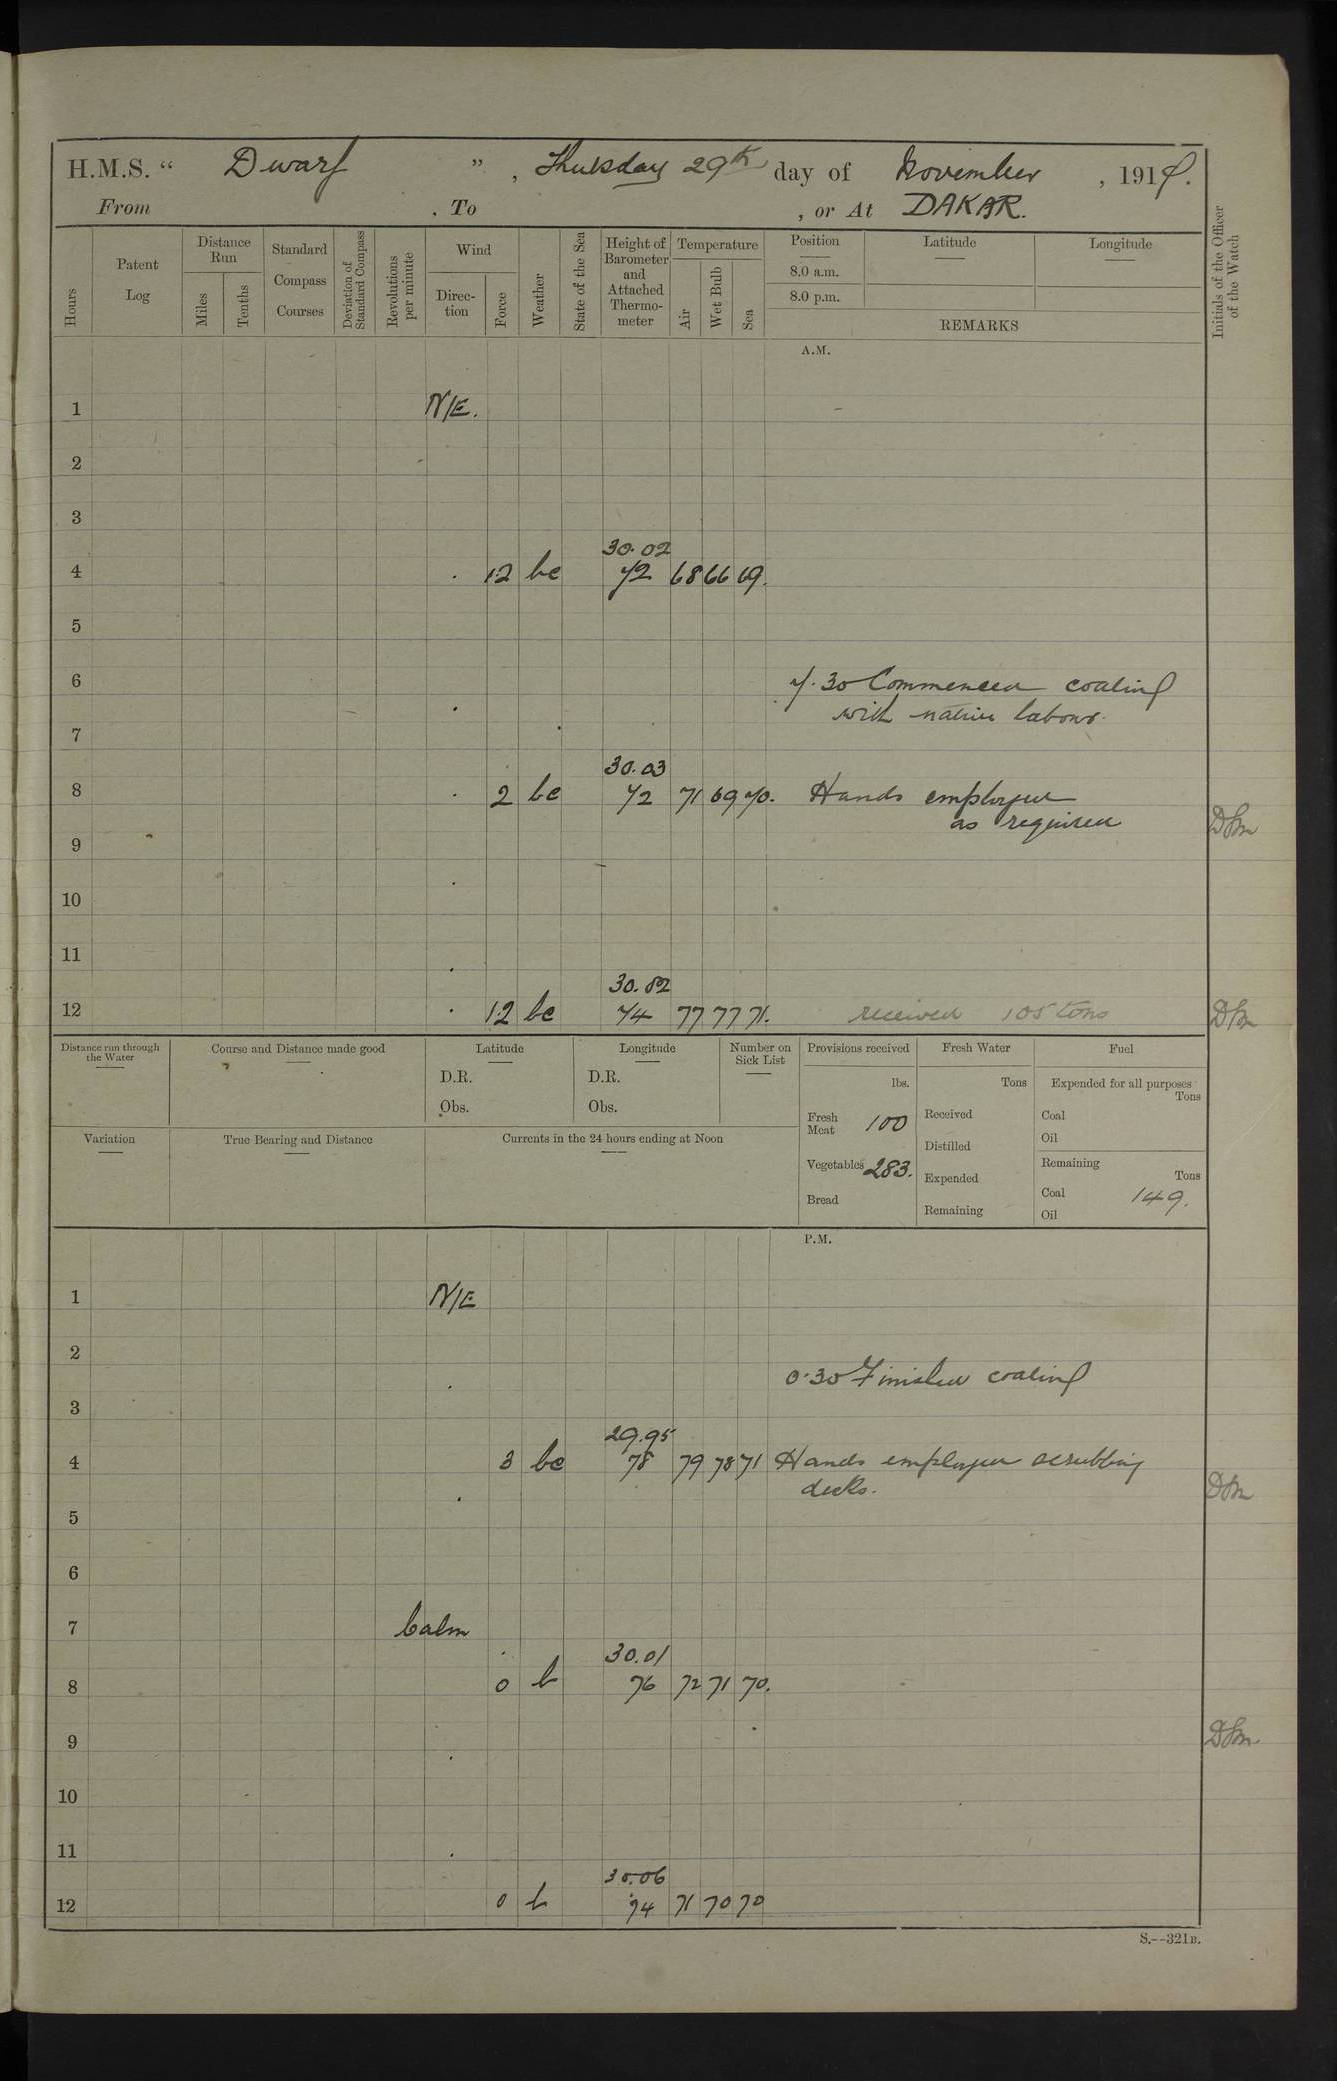 H.M.S. “ Dwarf ” , Thursday 29th day of November , 1917.
From , To , or At DAKAR.
Hours
Patent Log
Distance Run
Miles
Tenths
Standard Compass Courses
Deviation of Standard Compass
Revolutions per minute
Wind
Direction
Force
Weather
State of the Sea
Height of Barometer and Attached Thermometer
Temperature
Air
Wet Bulb
Sea
Position
8.0 a.m.
8.0 p.m.
Latitude
Longitude
REMARKS
Initials of the Officer of the Watch
A.M.
1 N/E.
2
3
30.02
4 1.2 bc 72 68 66 69.
5
6 7.30 Commenced coaling
with native labour.
7
30.03
8 2 bc 72 71 69 70. Hands employed
as required
9
10
11
30.02
12 1.2 bc 74 77 77 71. received 105 tons
Distance run through the Water
Course and Distance made good
Latitude
D.R.
Obs.
Longitude
D.R.
Obs.
Number on Sick List
Provisions received
lbs.
Fresh Meat 100
Vegetables 283.
Bread
Fresh Water
Tons
Received
Distilled
Expended
Remaining
Fuel
Expended for all purposes
Tons
Coal
Oil
Remaining
Tons
Coal 149.
Oil
Variation
True Bearing and Distance
Currents in the 24 hours ending at Noon
P.M.
1 N/E
2
0.30 Finished coaling
3
29.95
4 3 bc 78 79 78 71 Hands employed scrubbing
decks.
5
6
7 Calm
30.01
8 0 b 76 72 71 70.
9
10
11
30.06
12 0 b 74 71 70 70
S.--321B.